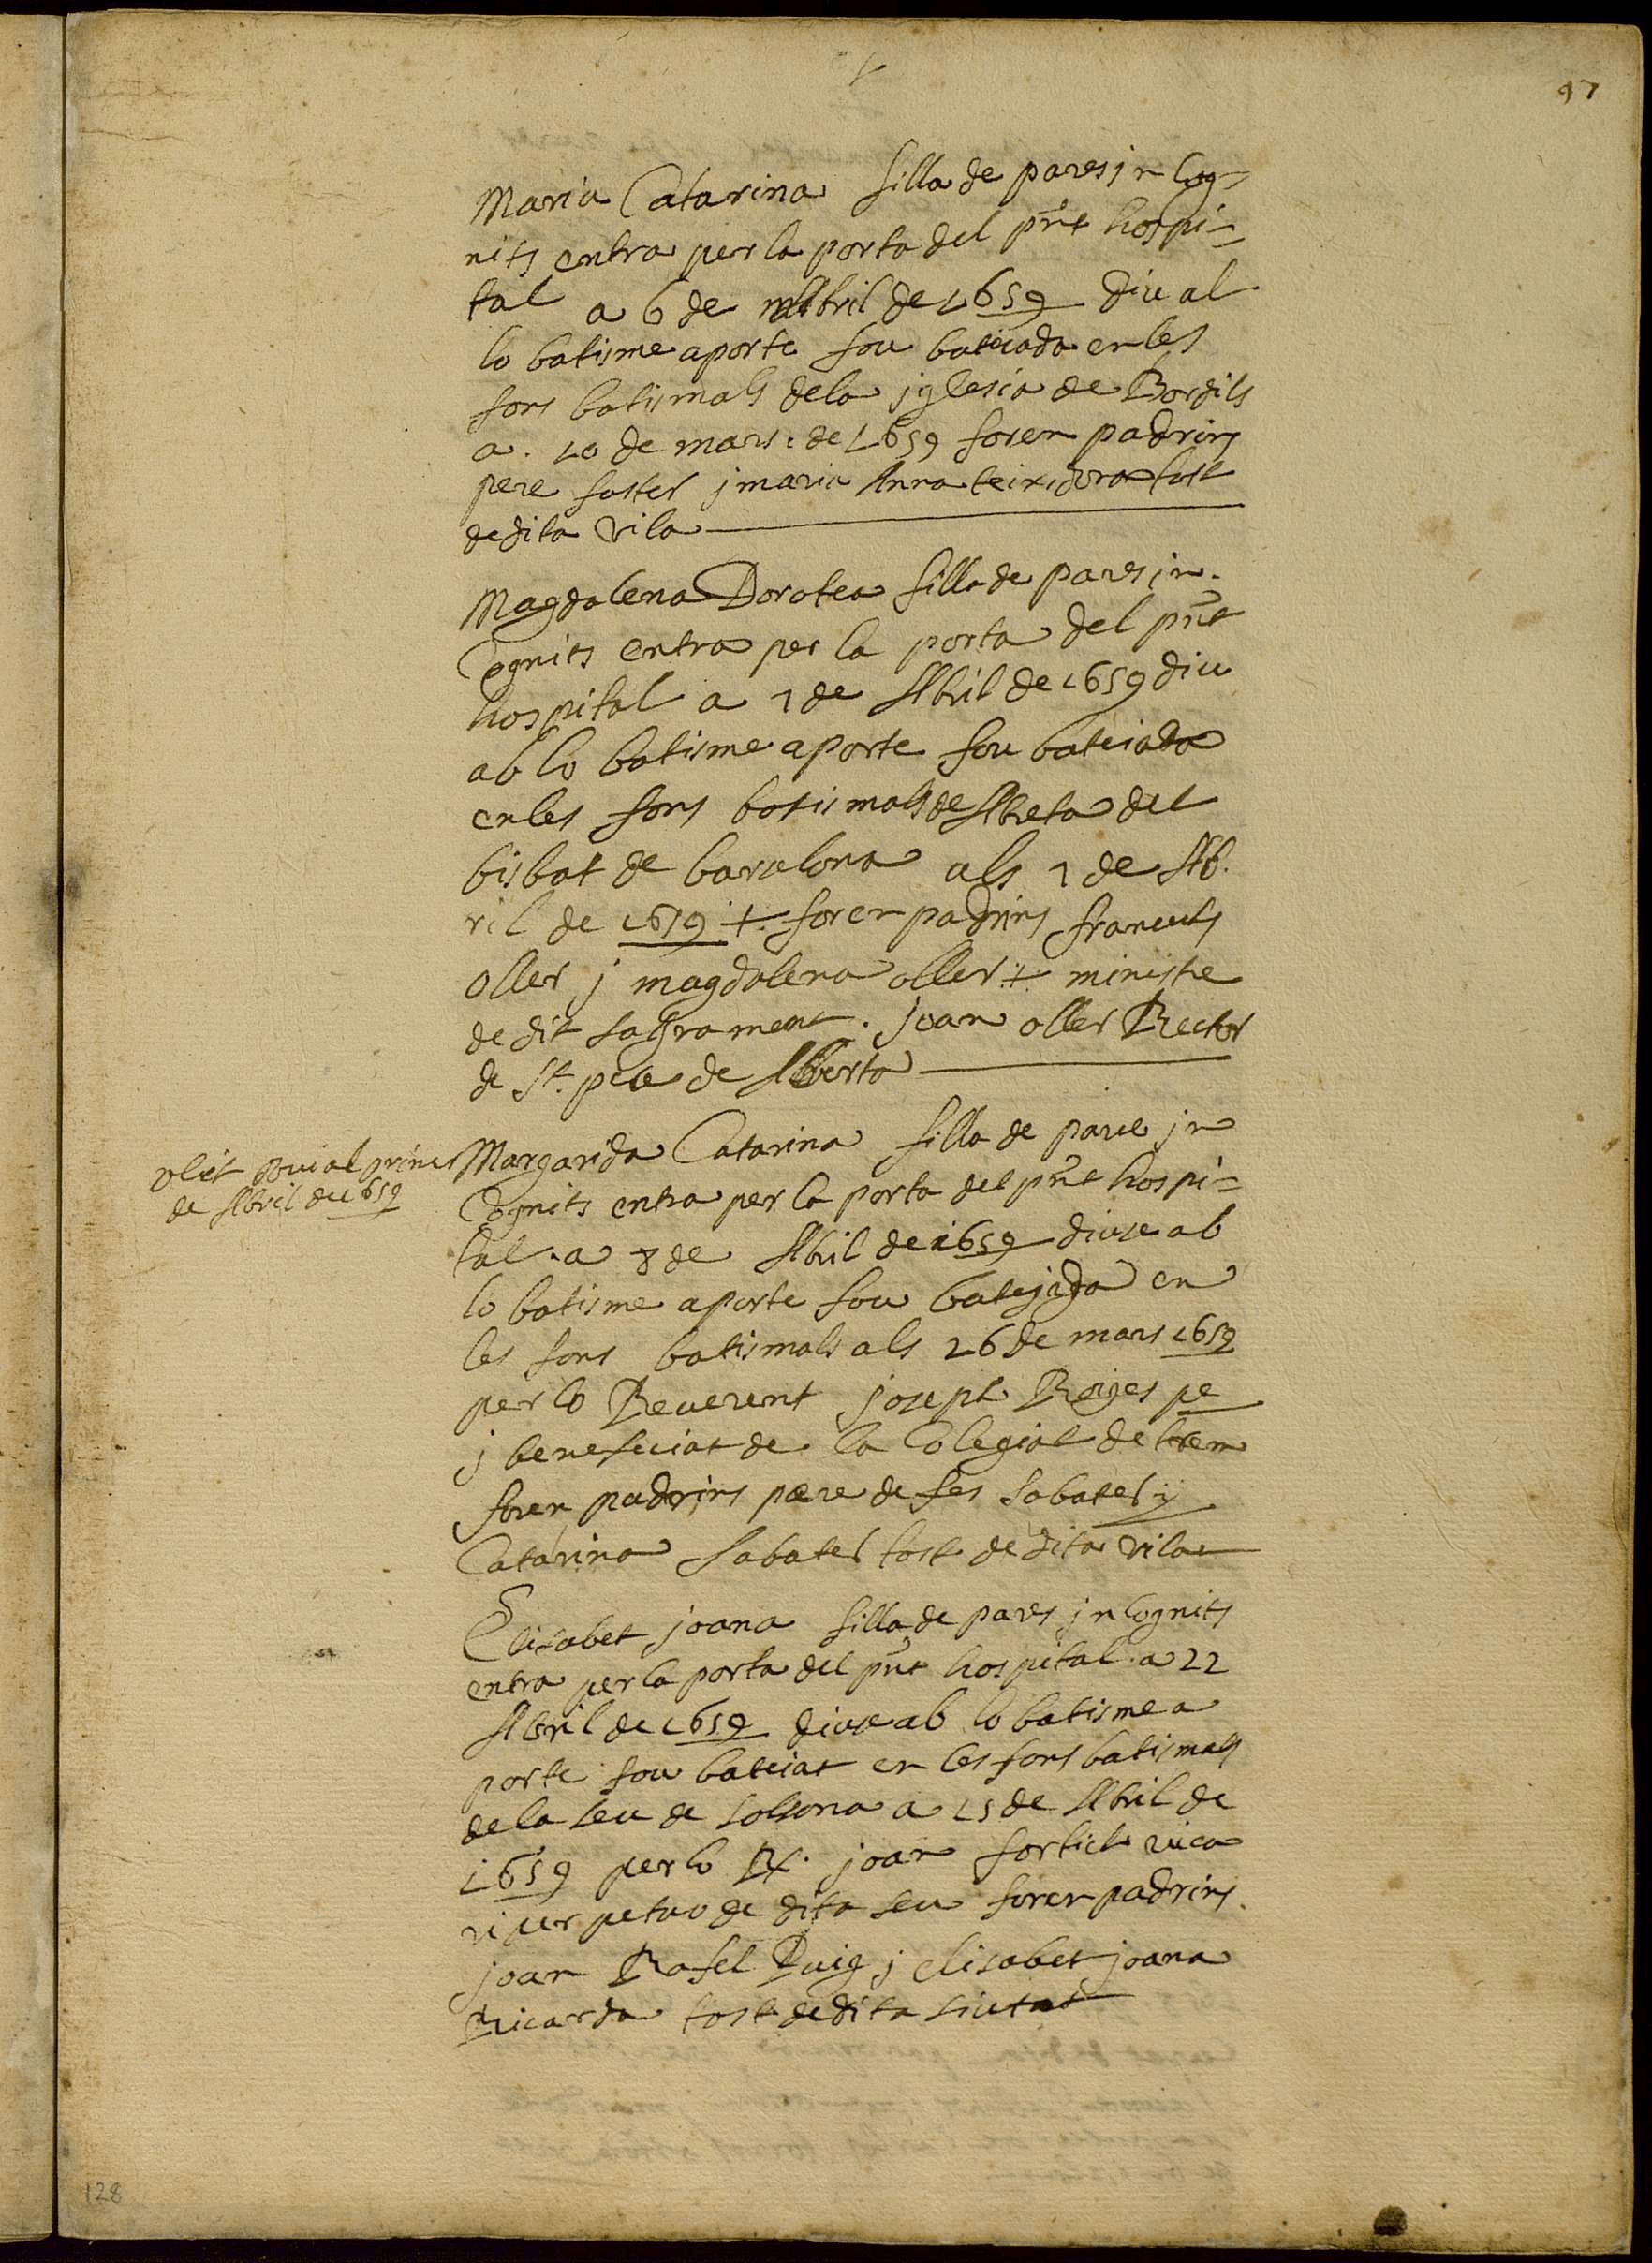 97
Maria Catarina filla de pares incog-
nits entra per la porta del pnt hospi=
tal a 6 de Abril de 1659 diu al
lo batisme aporte fou bateiada en les
fons batismals dela jglesia de Bordils
a . 10 de mars : de 1659 foren padrins
pere foster j maria Anna teixidora tost
de dita vila
Magdalena Dorotea filla de pares in.
Cognits entra per la porta del pnt
hospital a 7 de Abril de 1659 diu
ab lo batisme aporte fou bateiada
en les fons batismals de Abreta del
bisbat de barcelona als 7 de Ab.
ril de 1659 +. foren padrins francets
oller j magdalena oller + ministre
de dit sagrament . joan oller Rector
de St. pere de Abreta
olit
de Abril de 1659
Margarida Catarina filla de pares in
Cognits entra per la porta del pnt hospi=
tal . a 8 de Abril de 1659 diuse ab
lo batisme aporte fou batejada en
les fons batismals als 26 de mars 1659
per lo Reverent joseph Roiges pe
j beneficiat de la Colegial de trem
foren padrins pere de fes sabater y
Catarina sabater tost de dita vila
Elisabet joana filla de pares jncognits
entra per la porta del pnt hospital . a 22
Abril de 1659 diuse ab lo batisme a
porte fou bateiat en les fons batismals
de la seu de solsona a 15 de Abril de
1659 per lo R. joan fortich vica
ri perpetuo de dita seu foren padrins
joan Rafel Puig j elisabet joana
Ricarda tost de dita siutat
128